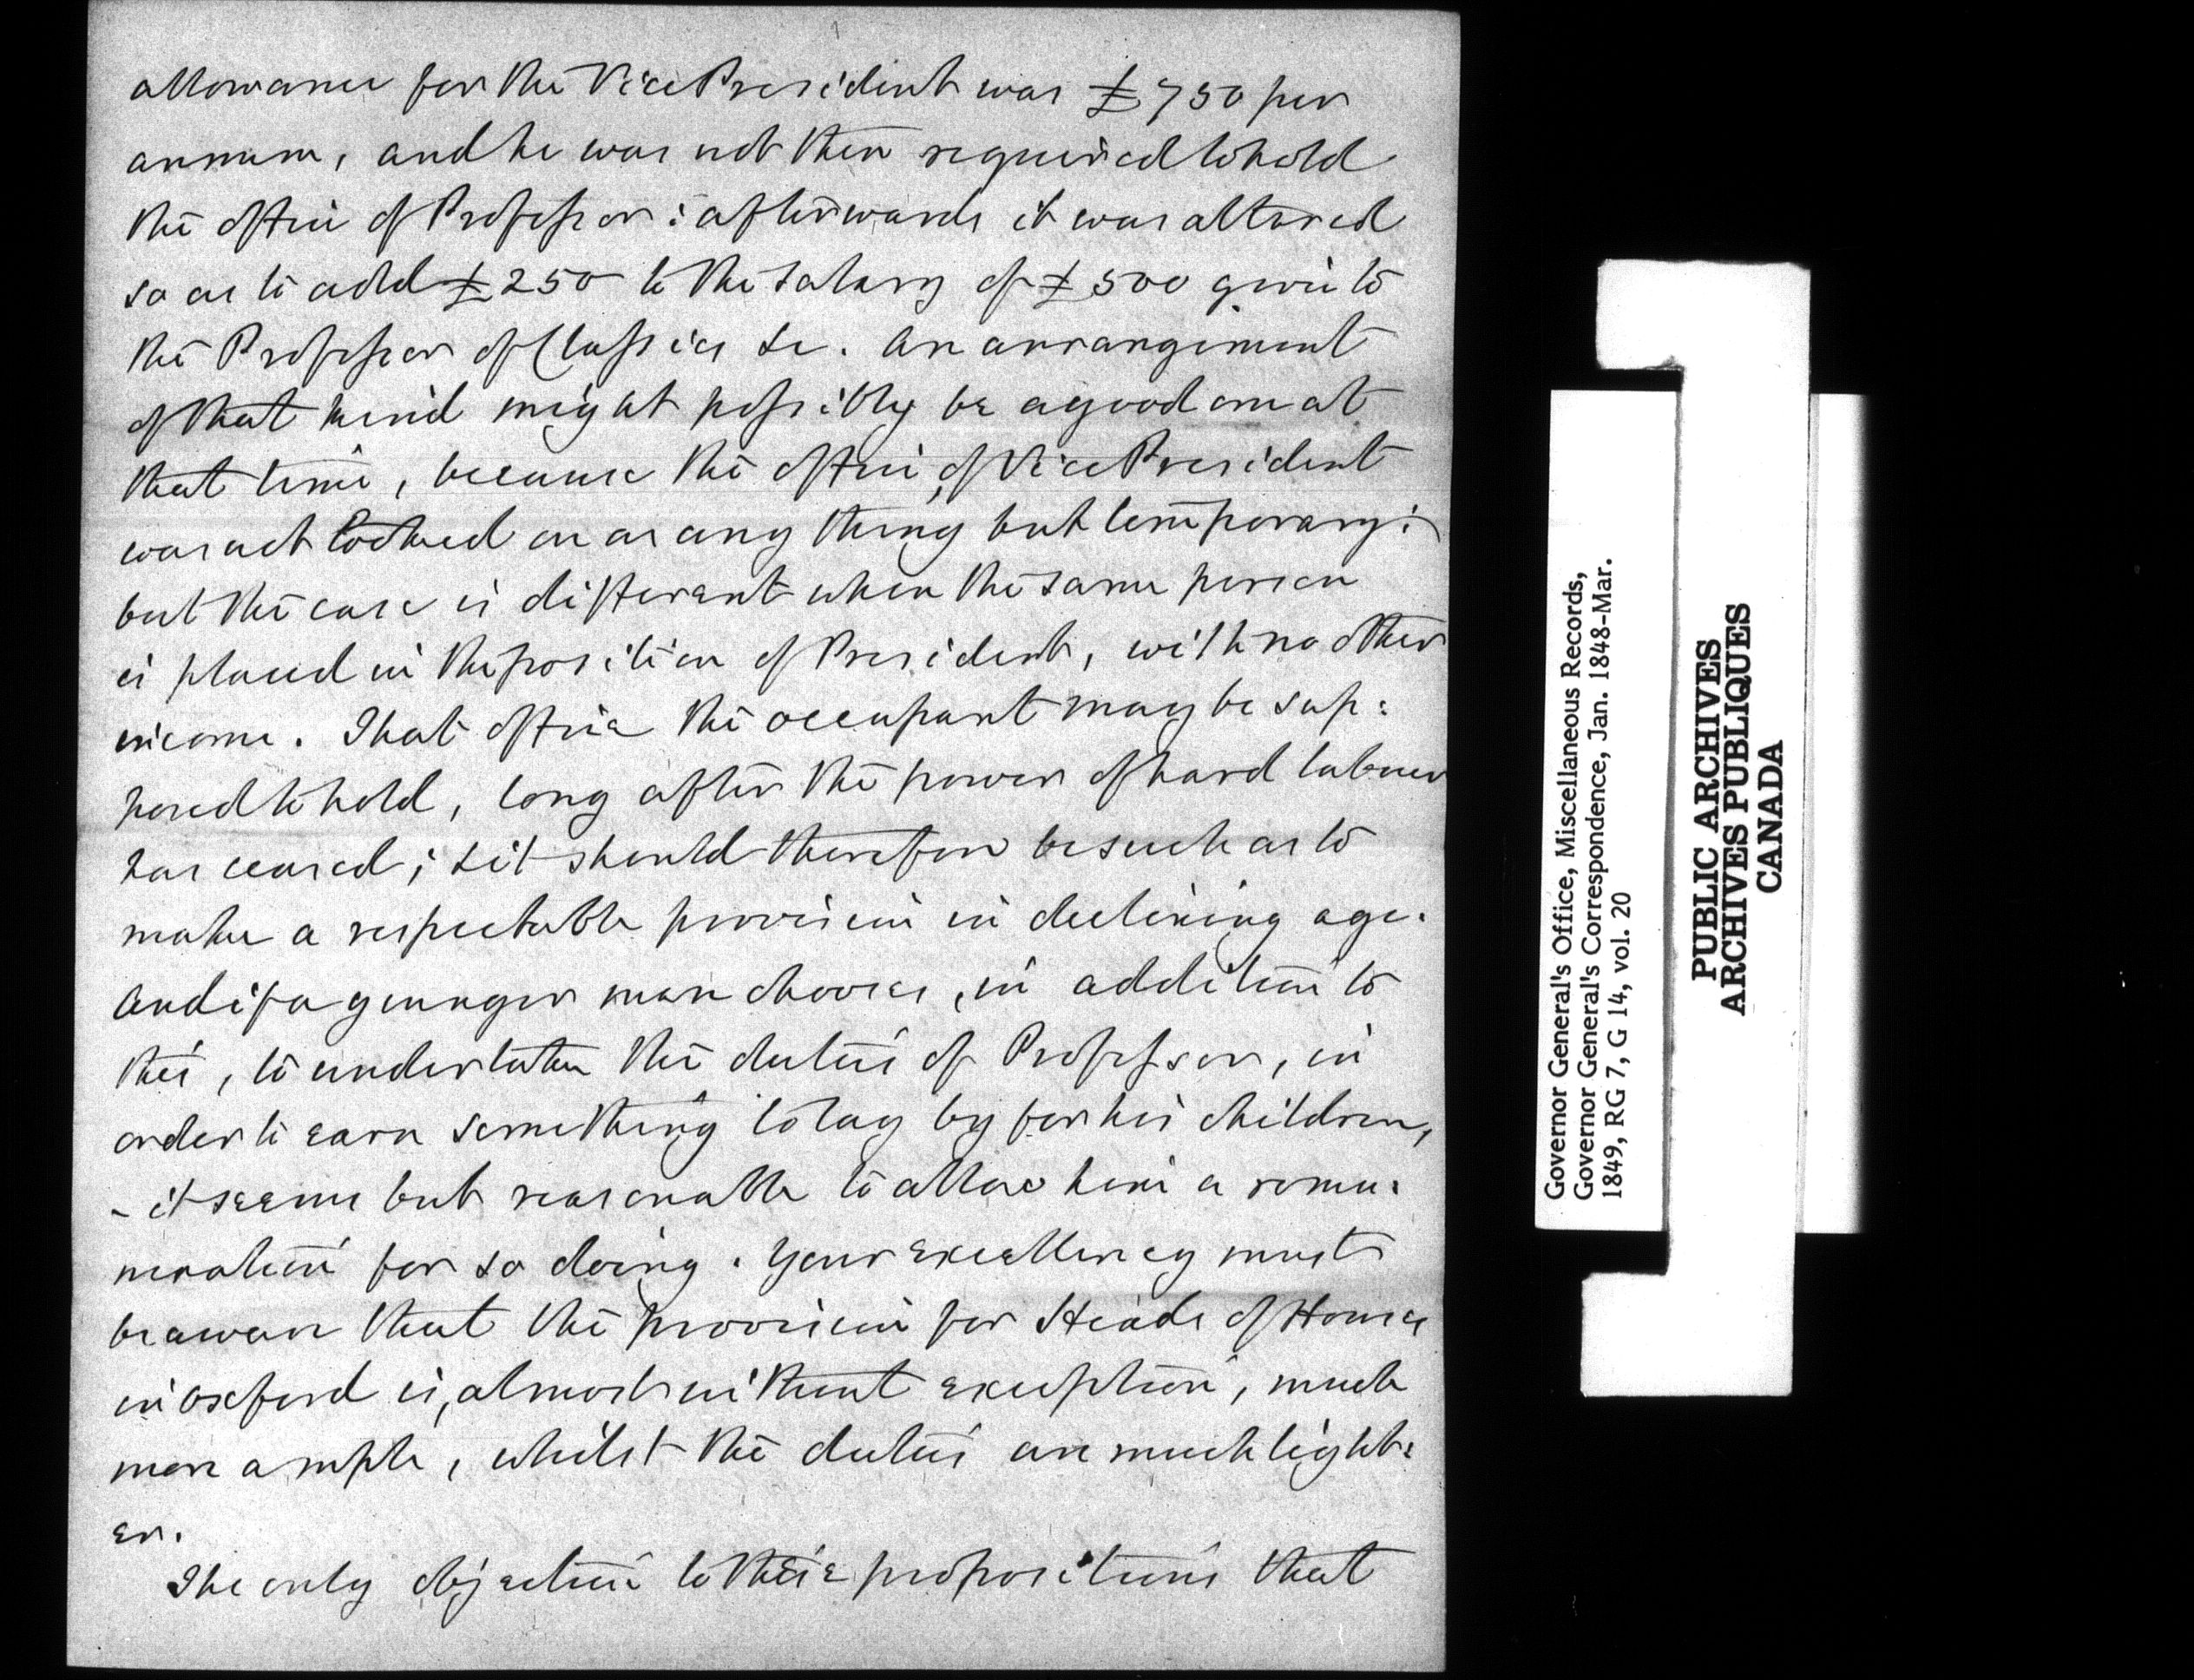 allowance for the Vice President was £750 per
annum, and he was not then required to hold
the office of Professor: afterwards it was altered
so as to add £250 to the salary of £500 given to
the Professor of Classics &c. An arrangement
of that kind might possibly be a good one at
that time, because the office of Vice President
was not looked on as any thing but temporary:
but the case is different when the same person
is placed in the position of President, with no other
income. That office the occupant may be sup:
posed to hold, long after the power of hard labour
has ceased; & it should therefore be such as to
make a respectable provision in declining age.
And if a younger man chooses, in addition to
this, to undertake the duties of Professor, in
order to earn something to lay by for his children,
- it seems but reasonable to allow him a remu:
neration for so doing. Your Excellency must
be aware that the provision for Heads of Houses
in Oxford is, almost without exception, much
more ample, whilst the duties are much light:
er.
The only objection to these propositions that
Governor General's Office, Miscellaneous Records,
Governor General's Correspondence, Jan. 1848-Mar.
1849, RG 7, G 14, vol. 20
PUBLIC ARCHIVES
ARCHIVES PUBLIQUES
CANADA